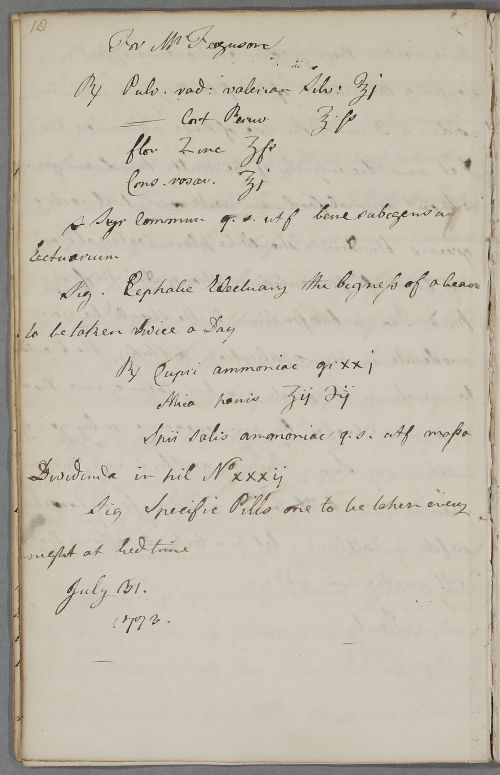 18
For Mr Ferguson
℞ Pulv. rad: valerian silv: ℥j
—— Cort Peruv ℥ſs
flor Zinc ʒſs
Cons. rosar. ℥j
& Syr Commun q. s. utf bene subigens
lectuarium
Sig. Cephalic Electuary the bigness of a bean
to be taken twice a Day
℞ Cupri ammoniac gr xxj
Mica panis ʒij ℈ij
Spii salis ammoniac q. s. utf massa
Dividenda in pil No xxxij
Sig Specific Pills one to be taken every
night at bed time
July 31.
1773.